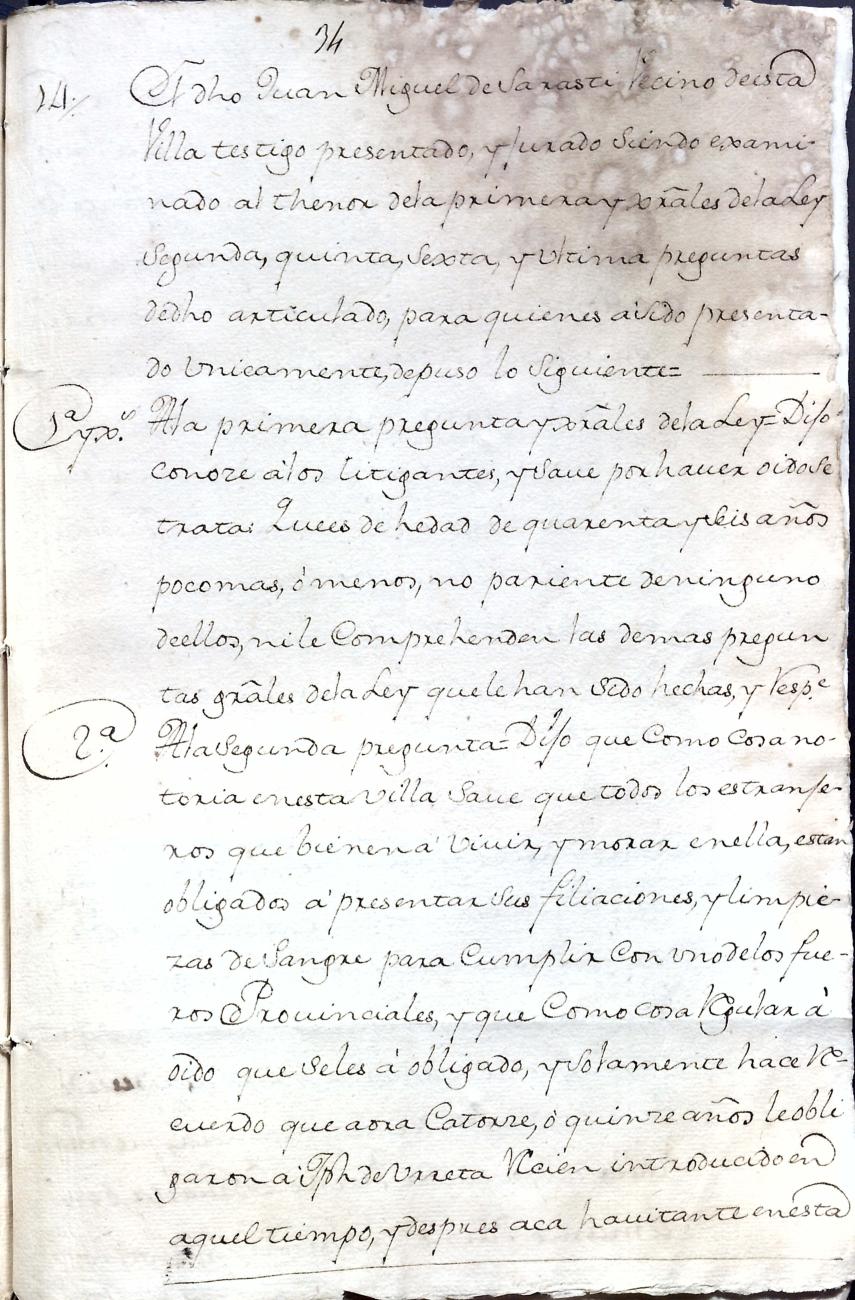 34
14./ El dho Juan Miguel de Sarasti Vecino de esta
Villa testigo presentado, y jurado siendo exami-
nado al thenor dela primera y grãles dela Ley
Segunda, quinta, sexta, y ultima preguntas
dedho articulado, para quienes a sido presenta-
do Unicamente, depuso lo siguiente=
1ª A la primera pregunta y grãles dela Ley= Dijo
conoze álos litigantes, y save por haver oido se
trata: Que es de hedad de quarenta y seis años
poco mas, ó menos, no pariente de ninguno
de ellos, ni le Comprehenden las demas pregun
tas grãles dela Ley que le han sido hechas, y Resp.e
2.ª A la segunda pregunta= Dijo que como cosa no-
toria en esta Villa save que todos los estranje-
ros que bienen á Vivir, y morar en ella, estan
obligados á presentar sus filiaciones, y limpie-
zas de sangre para Cumplir con uno delos fue-
ros Provinciales, y que Como cosa Regular á
oido que seles á obligado, y solamente hace Re-
cuerdo que aora Catorze, ó quinze años le obli
garon á Jph de Urreta Recien introducido en
aquel tiempo, y despues aca havitante en esta